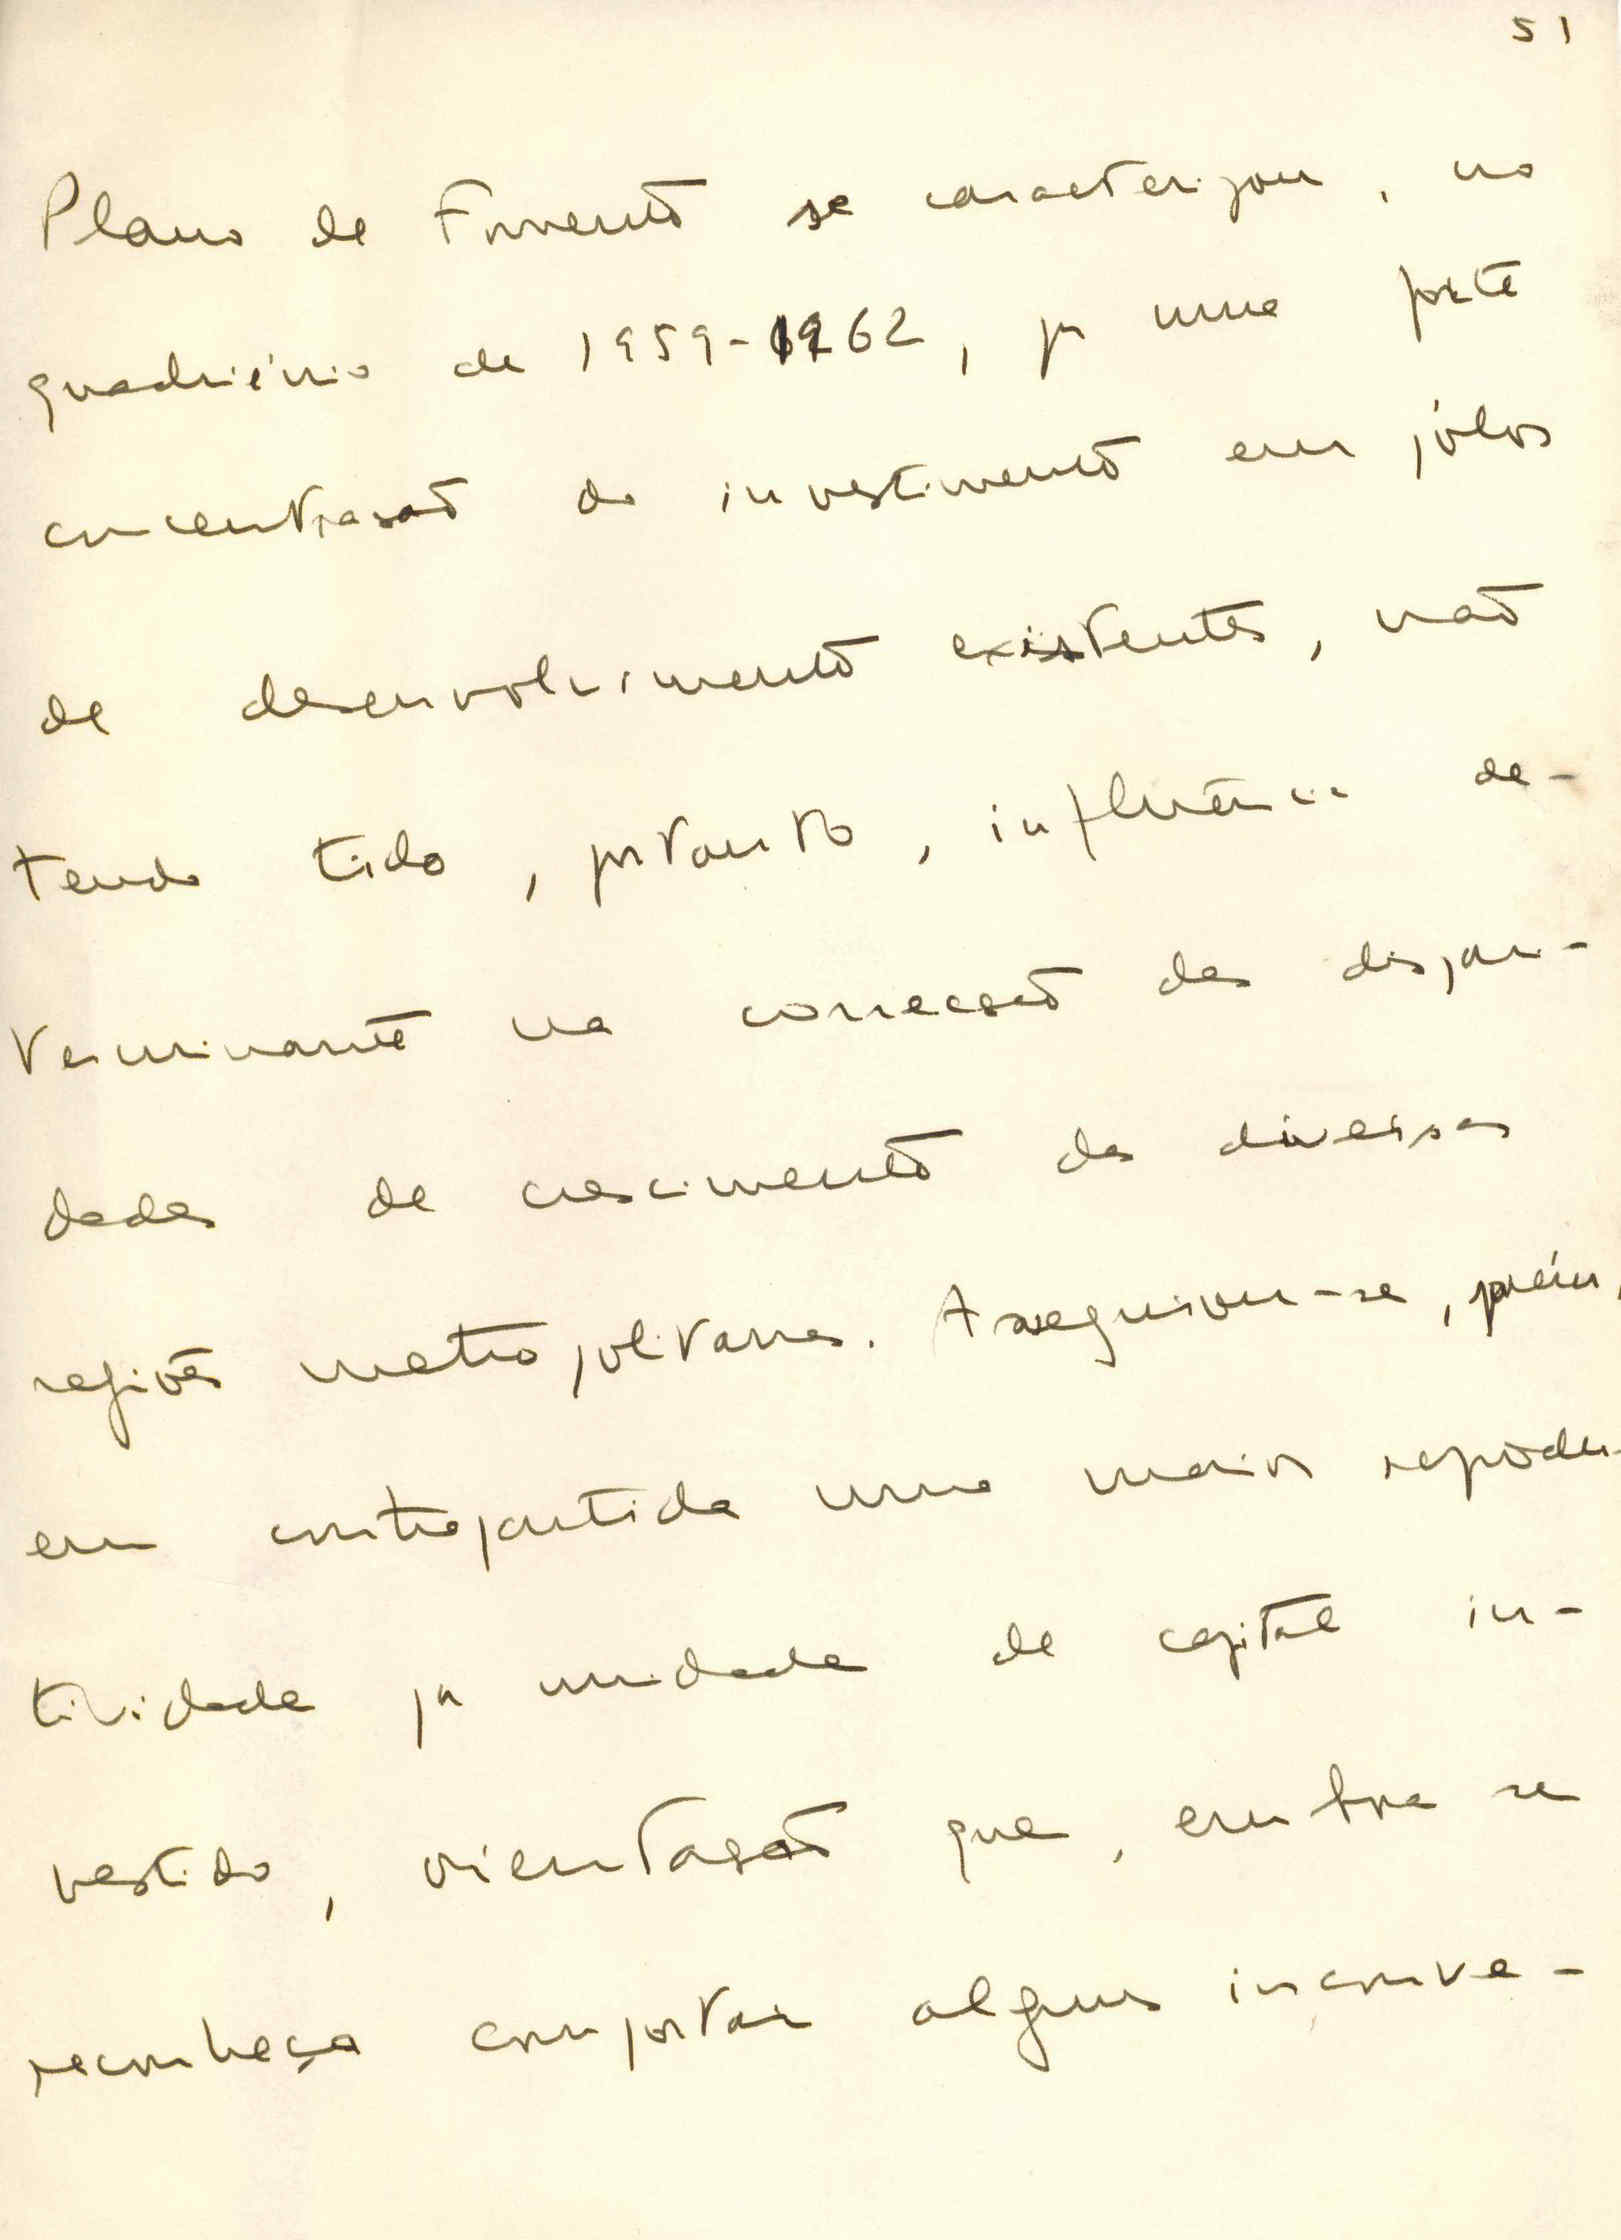 51
Plano de Fomento se caracterizou, no
quadriénio de 1959-1962, por uma forte
concentração do investimento em pólos
de desenvolvimento existentes, não
tendo tido, portanto, influência de-
terminante na correcção das dispari-
dades de crescimento das diversas
regiões metropolitanas. Assegurou-se, porém,
em contrapartida uma maior reprodu-
tividade por unidade de capital in-
vestido, orientação que, embora se
reconheça comportar alguns inconve-